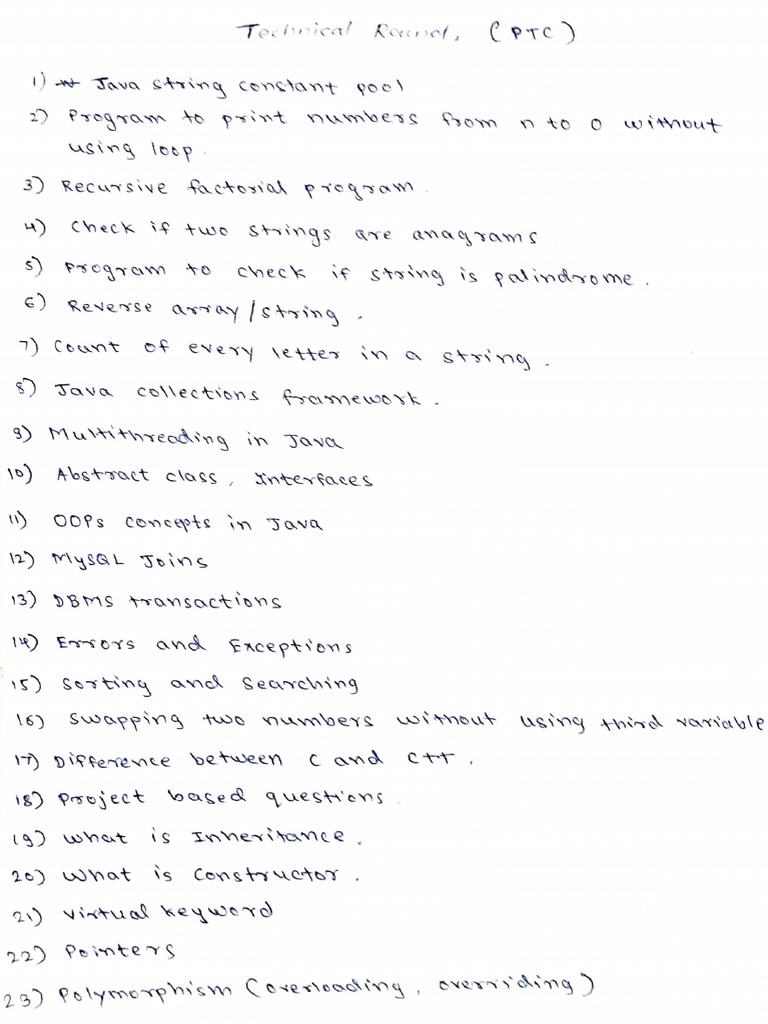 Technical Round, (PTC)
1) Java string constant pool
2) Program to print numbers from n to 0 without
using loop.
3) Recursive factorial program.
4) Check if two strings are anagrams
5) Program to check if string is palindrome.
6) Reverse array/string.
7) Count of every letter in a string.
8) Java collections framework.
9) Multithreading in Java
10) Abstract class, Interfaces
11) OOPs concepts in Java
12) MySQL Joins
13) DBMS transactions
14) Errors and Exceptions
15) Sorting and Searching
16) Swapping two numbers without using third variable
17) Difference between C and C++.
18) Project based questions.
19) What is Inheritance.
20) What is Constructor.
21) Virtual keyword
22) Pointers
23) Polymorphism (overloading, overriding)